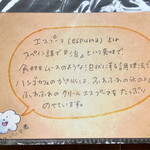 エスプーマ (espuma) とは
スペイン語で "泡" という意味で、
食材をムースのような泡状にする調理法で
ハンジカフェのラテには、ふわふわの
ふわふわのクリームエスプーマをたっぷり
のせています。